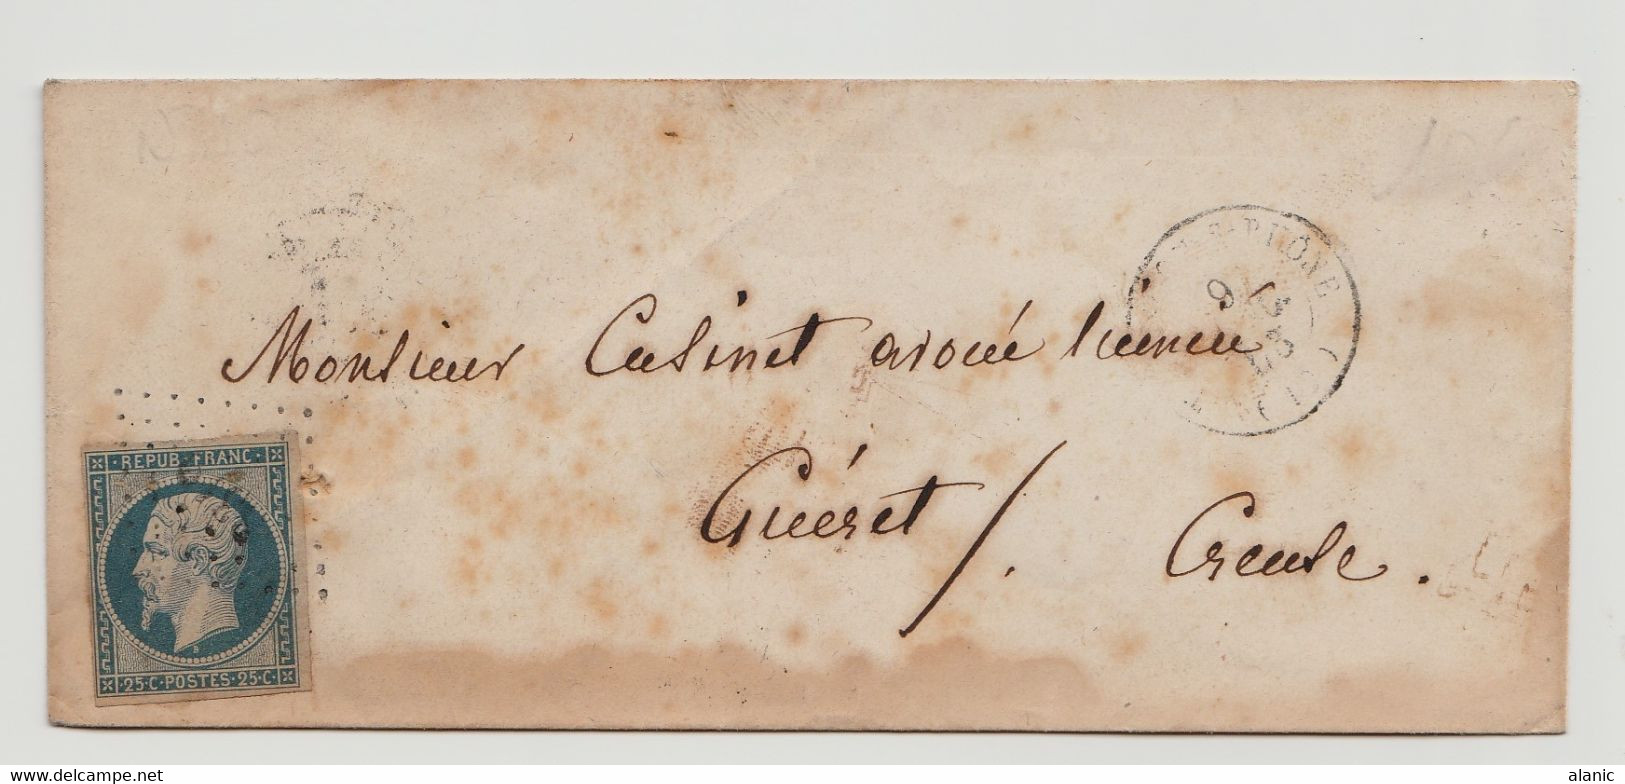 Monsieur Cusinet avoué licencié
Guéret /.
Creuse.
REPUB FRANC
25·C·POSTES·25·C
RHÔNE
9
delcampe.net
alanic